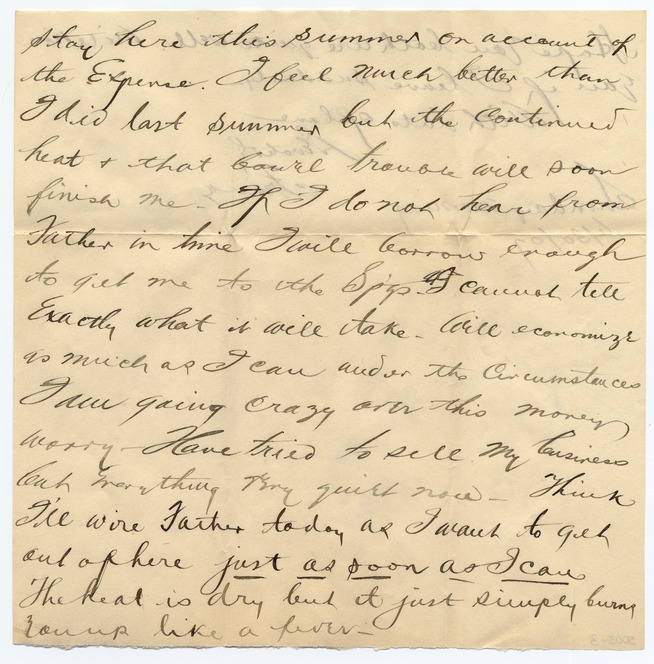 stay here this summer on account of
the Expense. I feel much better than
I did last summer but the continued
heat + that bowel trouble will soon
finish me - If I do not hear from
Father in time I will borrow enough
to get me to the Spgs. I cannot tell
Exactly what it will take - Will economize
as much as I can under the Circumstances
I am going crazy over this money
worry - Have tried to sell my business
but Everything very quiet now - Think
I'll wire Father today as I want to get
out of here just as soon as I can
The heat is dry but it just simply burns
you up like a fever -